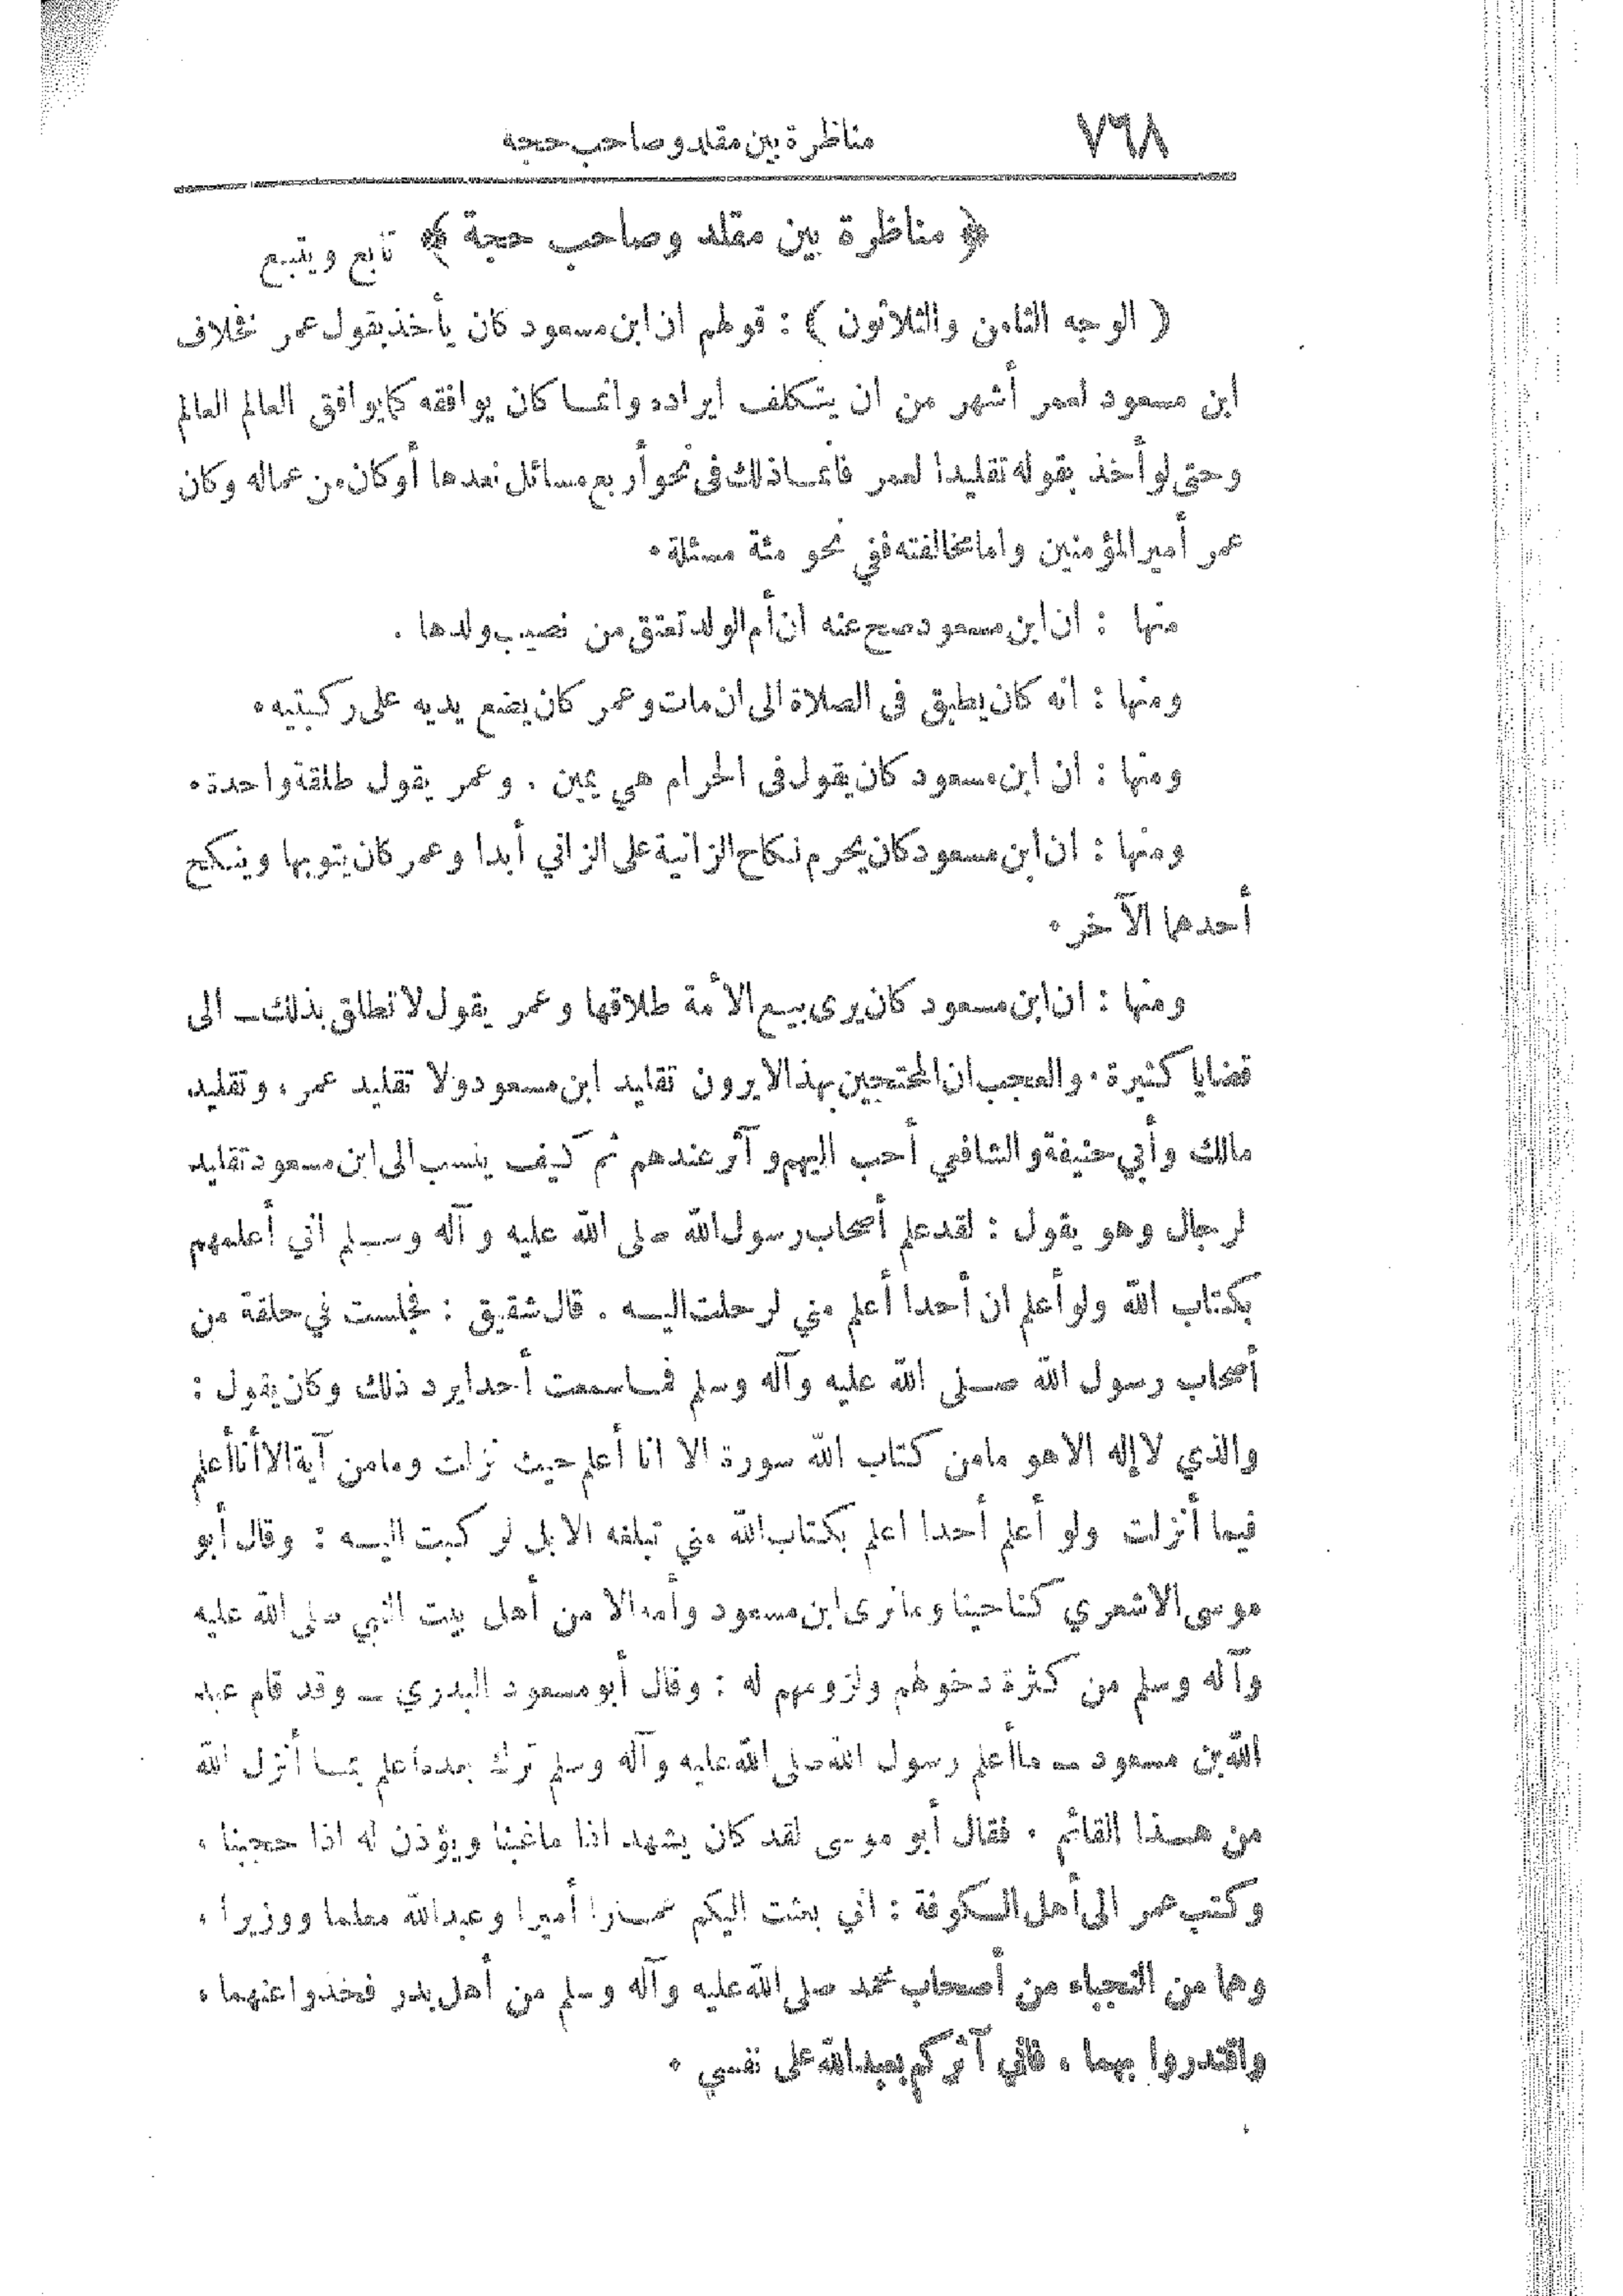 ٧٦٨ مناظرة بين مقلد وصاحب حجه
﴿ مناظرة بين مقلد وصاحب حجة ﴾ تابع ويتبع
( الوجه الثامن والثلاثون ) : قولهم ان ابن مسعود كان يأخذ بقول عمر نخلاف
ابن مسعود لعمر أشهر من ان يتكلف ايراده وانما كان يوافقه كما يوافق العالم العالم
وحتى لو أخذ بقوله تقليدا لعمر فانما ذلك فى نحو أربع مسائل نعدها أو كان من عماله وكان
عمر أمير المؤمنين واما مخالفته ففي نحو مئة مسئلة ٠
منها : ان ابن مسعود صح عنه ان أم الولد تعتق من نصيب ولدها .
ومنها : انه كان يطبق فى الصلاة الى ان مات وعمر كان يضع يديه على ركبتيه ٠
ومنها : ان ابن مسعود كان يقول فى الحرام هي يمين . وعمر يقول طلقة واحدة ٠
ومنها : ان ابن مسعود كان يحرم نكاح الزانية على الزاني أبدا وعمر كان يتوبها وينكح
أحدهما الآخر ٠
ومنها : ان ابن مسعود كان يرى بيع الأمة طلاقها وعمر يقول لا تطلق بذلك ـ الى
قضايا كثيرة ٠ والعجب ان المحتجين بهذا لا يرون تقليد ابن مسعود ولا تقليد عمر ، وتقليد
مالك وأبي حنيفة والشافعي أحب اليهم وآثر عندهم ثم كيف ينسب الى ابن مسعود تقليد
لرجال وهو يقول : لقد علم أصحاب رسول الله صلى الله عليه وآله وسلم اني أعلمهم
بكتاب الله ولو أعلم ان أحدا أعلم مني لرحلت اليه . قال شقيق : فجلست في حلقة من
أصحاب رسول الله صلى الله عليه وآله وسلم فما سمعت أحدا يرد ذلك وكان يقول :
والذي لا إله الا هو مامن كتاب الله سورة الا انا أعلم حيث نزلت ومامن آية الا أنا أعلم
فيما أنزلت ولو أعلم أحدا اعلم بكتاب الله مني تبلغه الابل لركبت اليه : وقال أبو
موسى الاشعري كنا حينا وما نرى ابن مسعود وأمه الا من أهل بيت النبي صلى الله عليه
وآله وسلم من كثرة دخولهم ولزومهم له : وقال أبو مسعود البدري ـ وقد قام عبد
الله بن مسعود ـ ما أعلم رسول الله صلى الله عليه وآله وسلم ترك بعده أعلم بما أنزل الله
من هذا القائم . فقال أبو موسى لقد كان يشهد اذا ماغبنا ويؤذن له اذا حجبنا ،
وكتب عمر الى أهل الكوفة : اني بعثت اليكم عمارا أميرا وعبدالله معلما ووزيرا ،
وهما من النجباء من أصحاب محمد صلى الله عليه وآله وسلم من أهل بدر فخذوا عنهما ،
واقتدروا بهما ، فاني آثركم بعبدالله على نفسي ٠